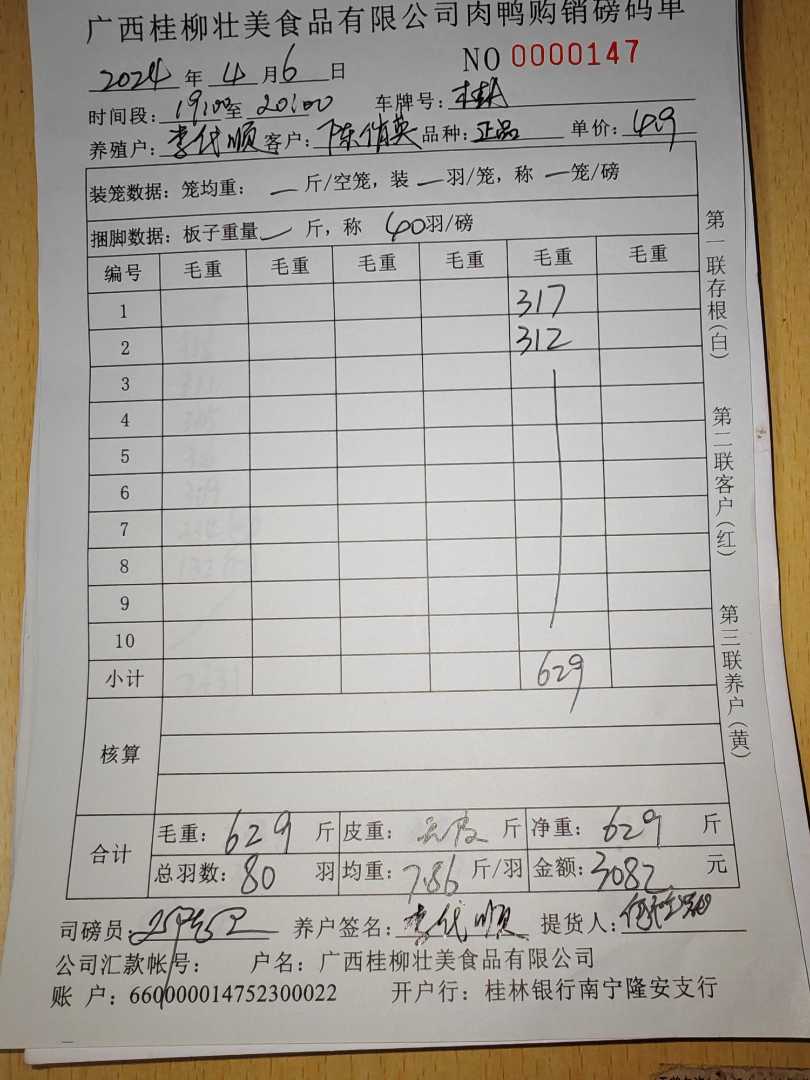 广西桂柳壮美食品有限公司肉鸭购销磅码单
2024年4月6日 NO 0000147
时间段：19:00至20:00 车牌号：
养殖户：李代顺 客户：陈俏英 品种：正品 单价：4.9
装笼数据：笼均重：一斤/空笼，装一羽/笼，称一笼/磅
捆脚数据：板子重量一斤，称40羽/磅
编号 毛重 毛重 毛重 毛重 毛重 毛重
1 317
2 312
3
4
5
6
7
8
9
10
小计 629
核算
合计 毛重：629斤 皮重：斤 净重：629斤
总羽数：80羽 均重：7.86斤/羽 金额：3082元
司磅员： 养户签名：李代顺 提货人：
公司汇款帐号： 户名：广西桂柳壮美食品有限公司
账 户：660000014752300022 开户行：桂林银行南宁隆安支行
第一联存根(白) 第二联客户(红) 第三联养户(黄)